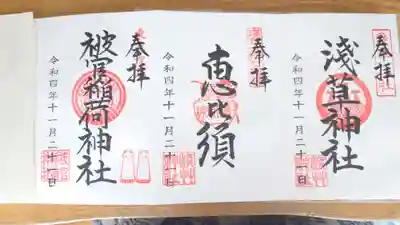 奉拝
淺草神社
令和四年十一月二十一日
奉拝
恵比須
令和四年十一月二十一日
奉拝
被官稲荷神社
令和四年十一月二十一日